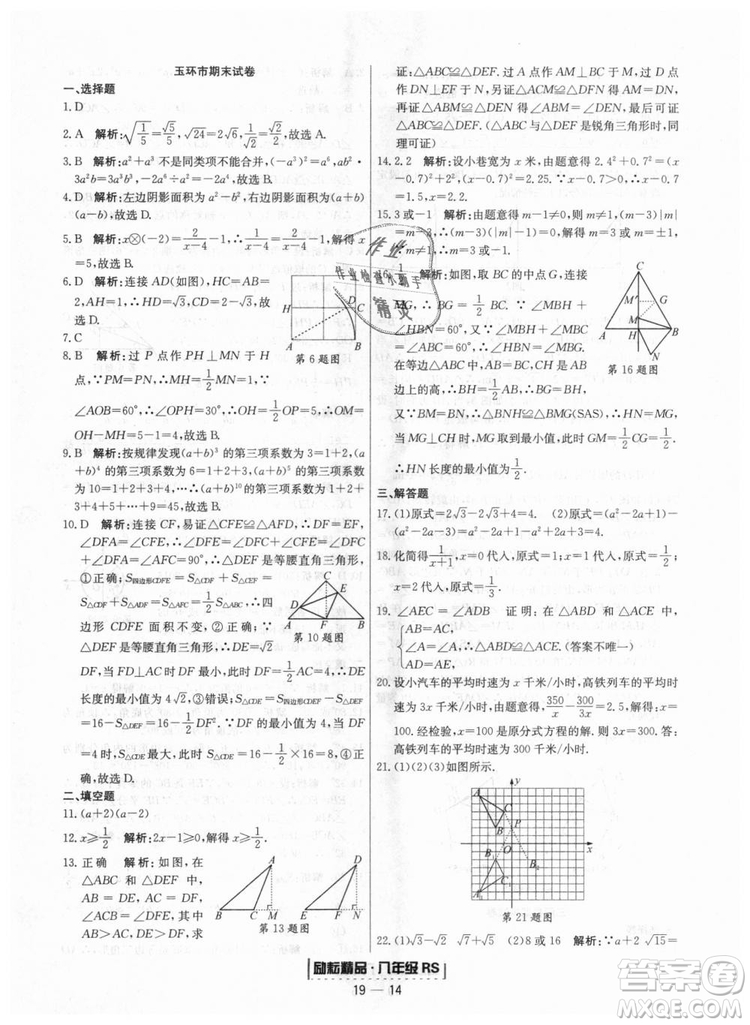 玉环市期末试卷
一、选择题
1. D
2. A 解析:√(1/5)=√5/5,√24=2√6,√(1/2)=√2/2,故选A.
3. B 解析:a²+a³不是同类项不能合并,(-a³)²=a⁶,ab²·
3a²b=3a³b³,a⁵÷a⁵=1,故选B.
4. D 解析:左边阴影面积为a²-b²,右边阴影面积为(a+b)
(a-b),故选D.
5. B 解析:x⊗(-2)=2/(x-4)-1,∴1/(x-4)=2/(x-4)-1,解得x
=5,故选B.
6. D 解析:连接AD(如图),HC=AB=
2,AH=1,∴HD=√3,CD=2-√3,
故选D.
H D C A B
第6题图
7. C
8. B 解析:过P点作PH⊥MN于H
点,∵PM=PN,∴MH=1/2MN=1,∵
∠AOB=60°,∴∠OPH=30°,∴OH=1/2OP=6,∴OM=
OH-MH=5,故选B.
9. B 解析:按规律发现(a+b)³的第三项系数为3=1+2,(a
+b)⁴的第三项系数为6=1+2+3,(a+b)⁵的第三项系数
为10=1+2+3+4,…,∴(a+b)¹⁰的第三项系数为1+2+
3+…+9=45,故选B.
10. D 解析:连接CF,易证△CFE≌△AFD,∴DF=EF,
∠DFA=∠CFE,∴∠DFE=∠DFC+∠CFE=∠DFC+
∠DFA=∠AFC=90°,∴△DEF是等腰直角三角形,
①正确;S四边形CDFE=S△CDF+S△CFE=
S△CDF+S△AFD=S△ACF=1/2S△ABC,∴四
边形CDFE面积不变,②错误;∵
△DEF是等腰直角三角形,∴DE=√2
C E D A F B
第10题图
DF,当FD⊥AC时,DF=1/2AC=4最小,∴DE
长度的最小值为4√2,③错误;S△CDE=S四边形CDFE-S△DEF
=16-S△DEF=16-1/2DF²,当DF=4时,S△CDE最大,
S△CDE=16-1/2DF²=16-1/2×16=16-8=8,④
正确,故选D.
二、填空题
11. (a+2)(a-2)
12. x≥1/2 解析:2x-1≥0,解得x≥1/2.
13. 正确 解析:如图,在
△ABC和△DEF中,
∠ACB和∠DFE均为钝
角,AB=DE,AC=DF,
BC边上高AM=DN,求
A B C M D E F N
第13题图
证:△ABC≌△DEF.(证明:过点A作AM⊥BC于M,
过点D作DN⊥EF于N,先证△AMC≌△DNF,
再证△ABM≌△DEN,可得BC=EF,最后可证
△ABC≌△DEF)(当△ABC与△DEF是锐角三角形时,同
理可证)
14. 2.2 解析:设小巷宽为x米,由题意得2.4²+0.7²=(x
-0.7)²+2²,(x-0.7)²=2.25,∵x-0.7>0,∴x-0.7=
1.5,x=2.2.
15. 3或-1 解析:由题意得m-1≠0,则(m-1)|m|
=m-1,∴m=3或m=-1.
1/2 解析:如图,取BC的中点G,连接
MG,∴BG=CG=1/2BC,∵∠MBH+
∠HBN=60°,∠MBH+∠MBC=
60°,∴∠HBN=∠GBM,∵CH是AB
上的高,∴BH=1/2AB,∴BH=BG,
又∵BM=BN,∴△MBG≌△NBH(SAS),∴HN=MG,
当MG⊥CH时,MG取到最小值,此时GM=1/2CG=1/2,
∴HN长度的最小值为1/2.
C M′ G M A H B N
第16题图
三、解答题
17. (1)原式=2√3-2√3+4=4. (2)原式=(a²-2a)-
(a²-2a-3)=a²-2a-a²+2a+3=3.
18. 化简得1/(x+1),x=0代入,原式=1/(0+1)=1.
19. ∠AEC=∠ADB 证明:在△ABD与△ACE中,
AB=AC,
∠A=∠A,∴△ABD≌△ACE.(答案不唯一)
20. 设小汽车的平均时速为x千米/小时,高铁列车的平均时
速为3x千米/小时,由题意得350/x-300/3x=2.5,解得x=
100.经检验,x=100是原分式方程的解,3x=300.答:
高铁列车的平均时速为300千米/小时.
21. (1)(2)(3)如图所示.
第21题图
22. (1)√3-√2 √7-√6 (2)8或16 解析:∵a√2 √15=
作业
作业检查小助手
精灵
励耘精品·八年级RS
19 — 14
答案圈
MXQE.COM